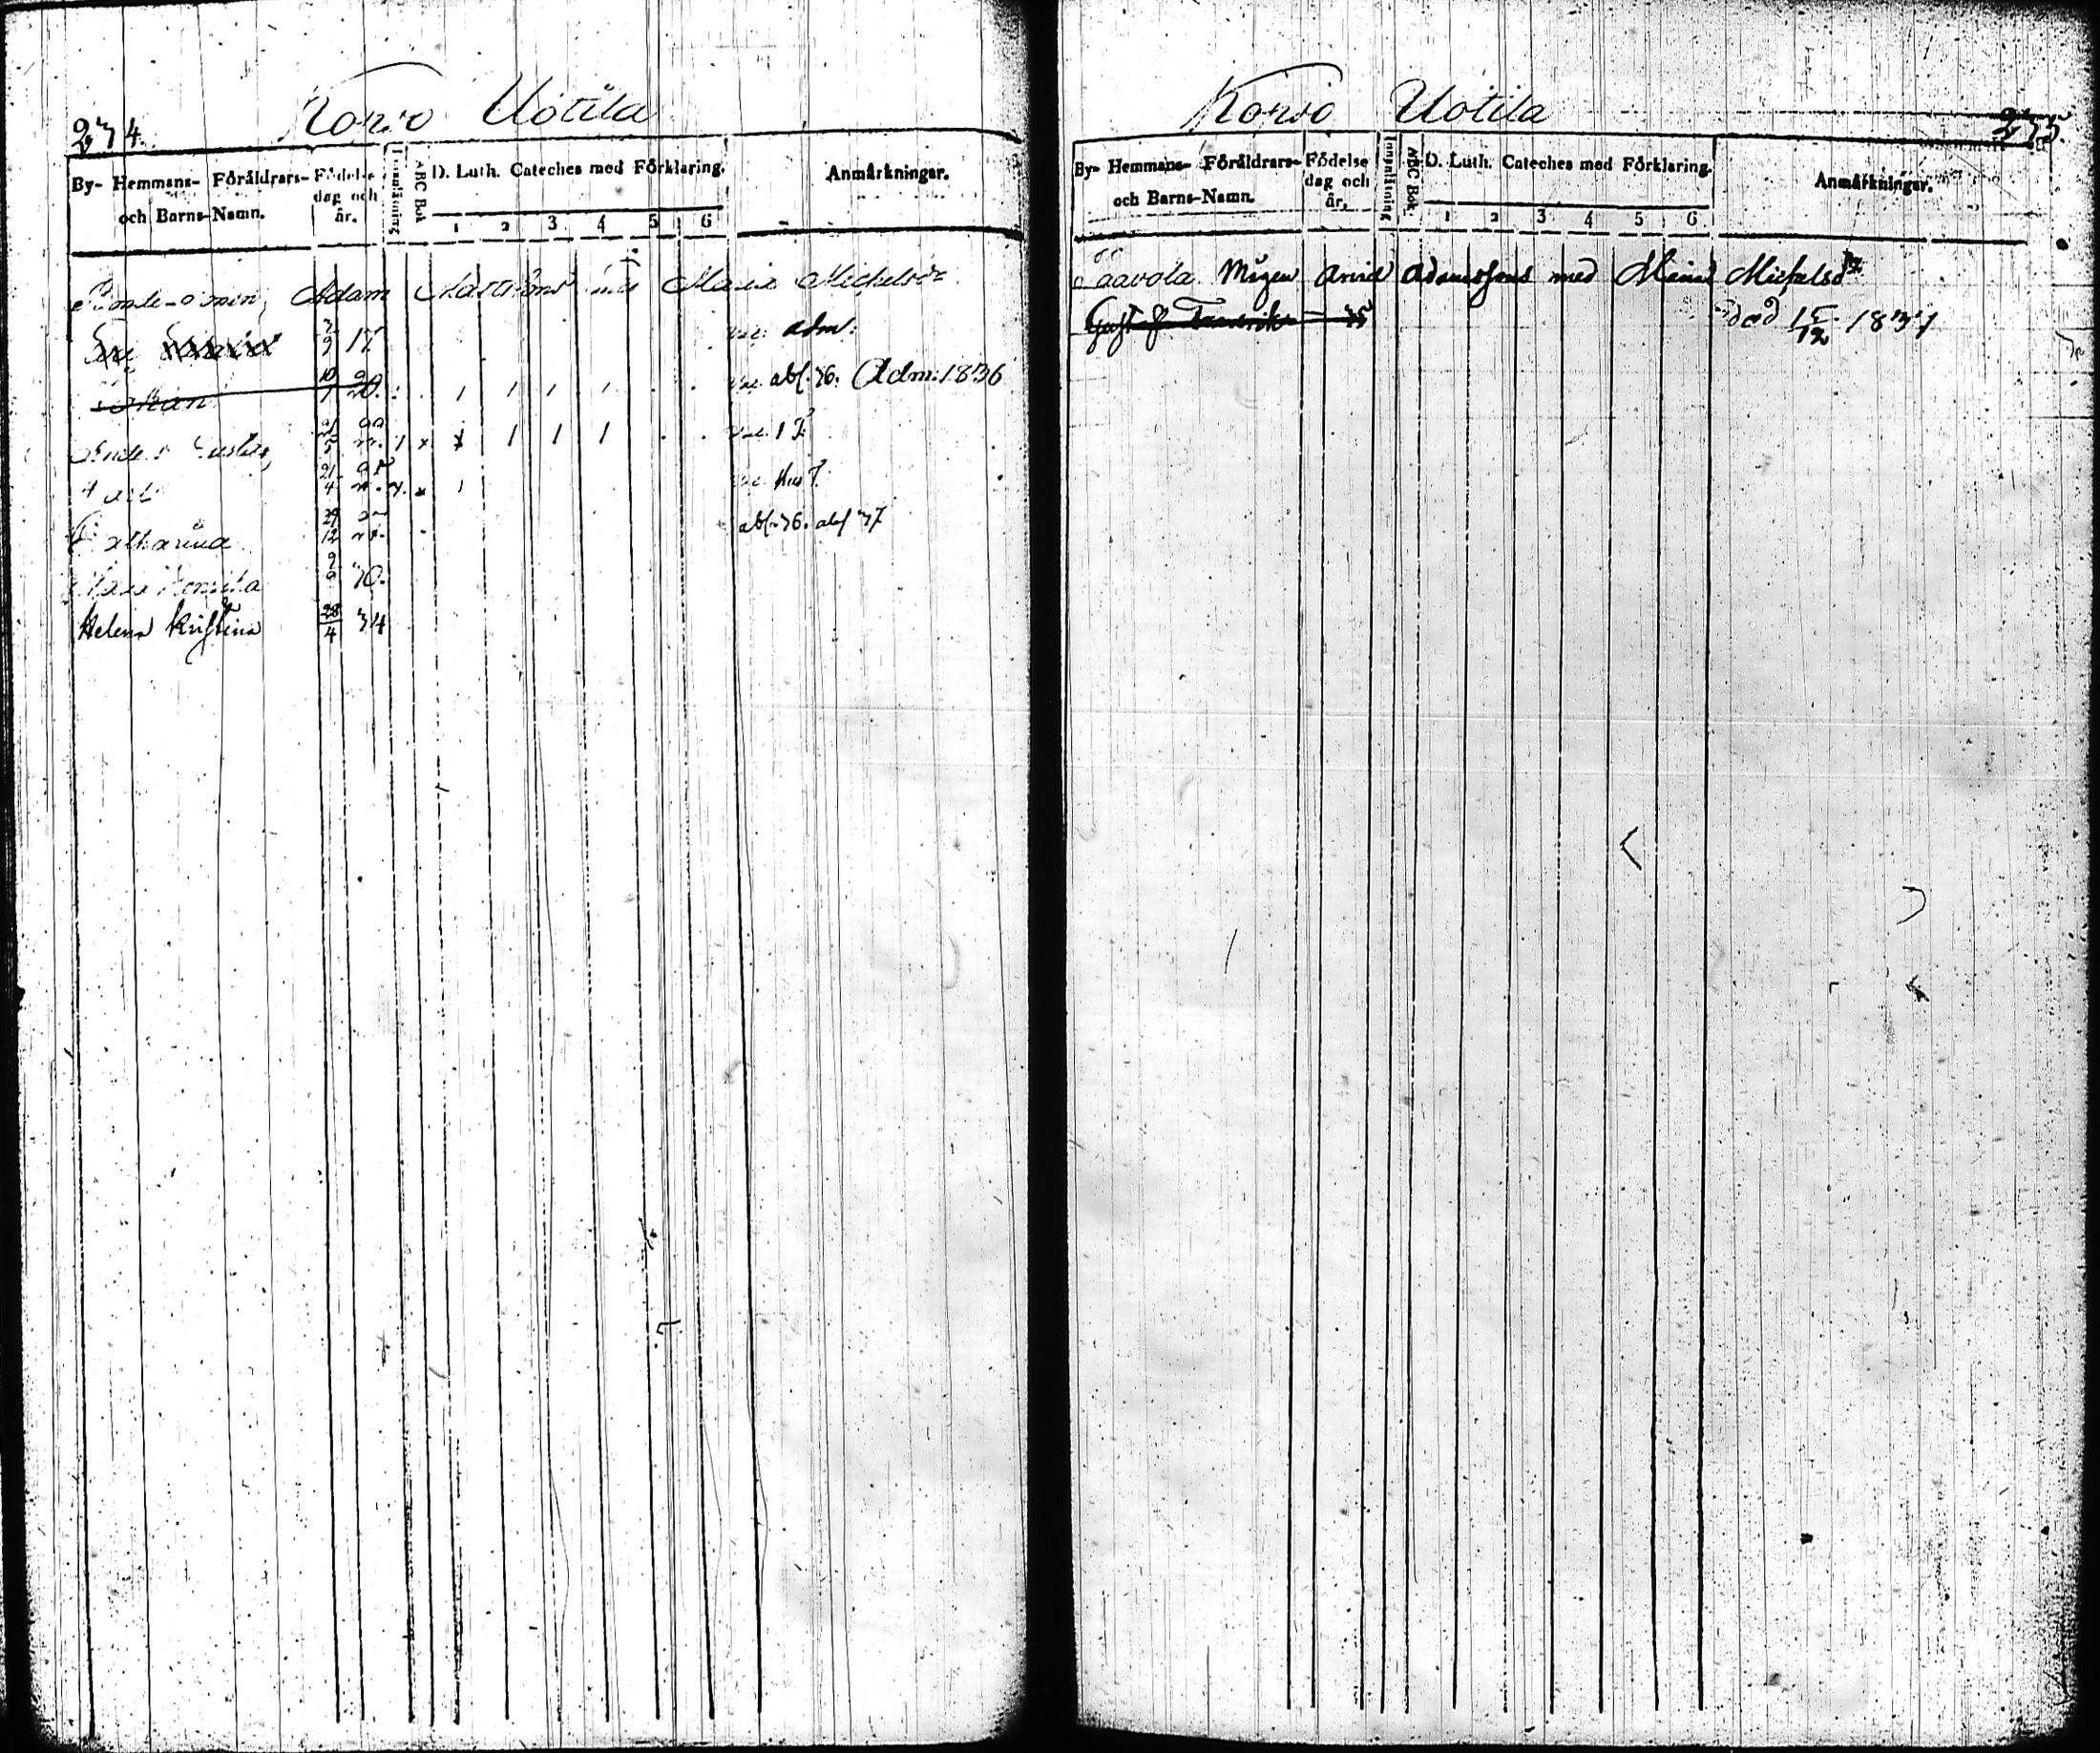 274.
Korvo Uotila
By- Hemmans- Föräldrars- och Barns-Namn.
Födelse dag och år.
Innanläsning
ABC Bok
D. Luth. Cateches med Förklaring.
1 2 3 4 5 6
Anmärkningar.
Adam Mattsons med Maria Michelsdr
2/9 17 vac. adm:
Johan 10/1 20. 1 1 1 1 vac. abs. 36. Adm: 1836
Anders Gustav, 1 x x 1 1 1 vac. 1 F.
21/4 x 1 vac.
Catharina 29/12 abs. 36. abs 37
Maria Henrika 9/9 30.
Helena Kristina 28/4 34
275.
Korvo Uotila
By- Hemmans- Föräldrars- och Barns-Namn.
Födelse dag och år.
Innanläsning
ABC Bok.
D. Luth. Cateches med Förklaring.
1 2 3 4 5 6
Anmärkningar.
Paavola Mågen Arvid Adamssons med Maria Michelsdr
Gustaf Fredrik 35 död 15/12 1837